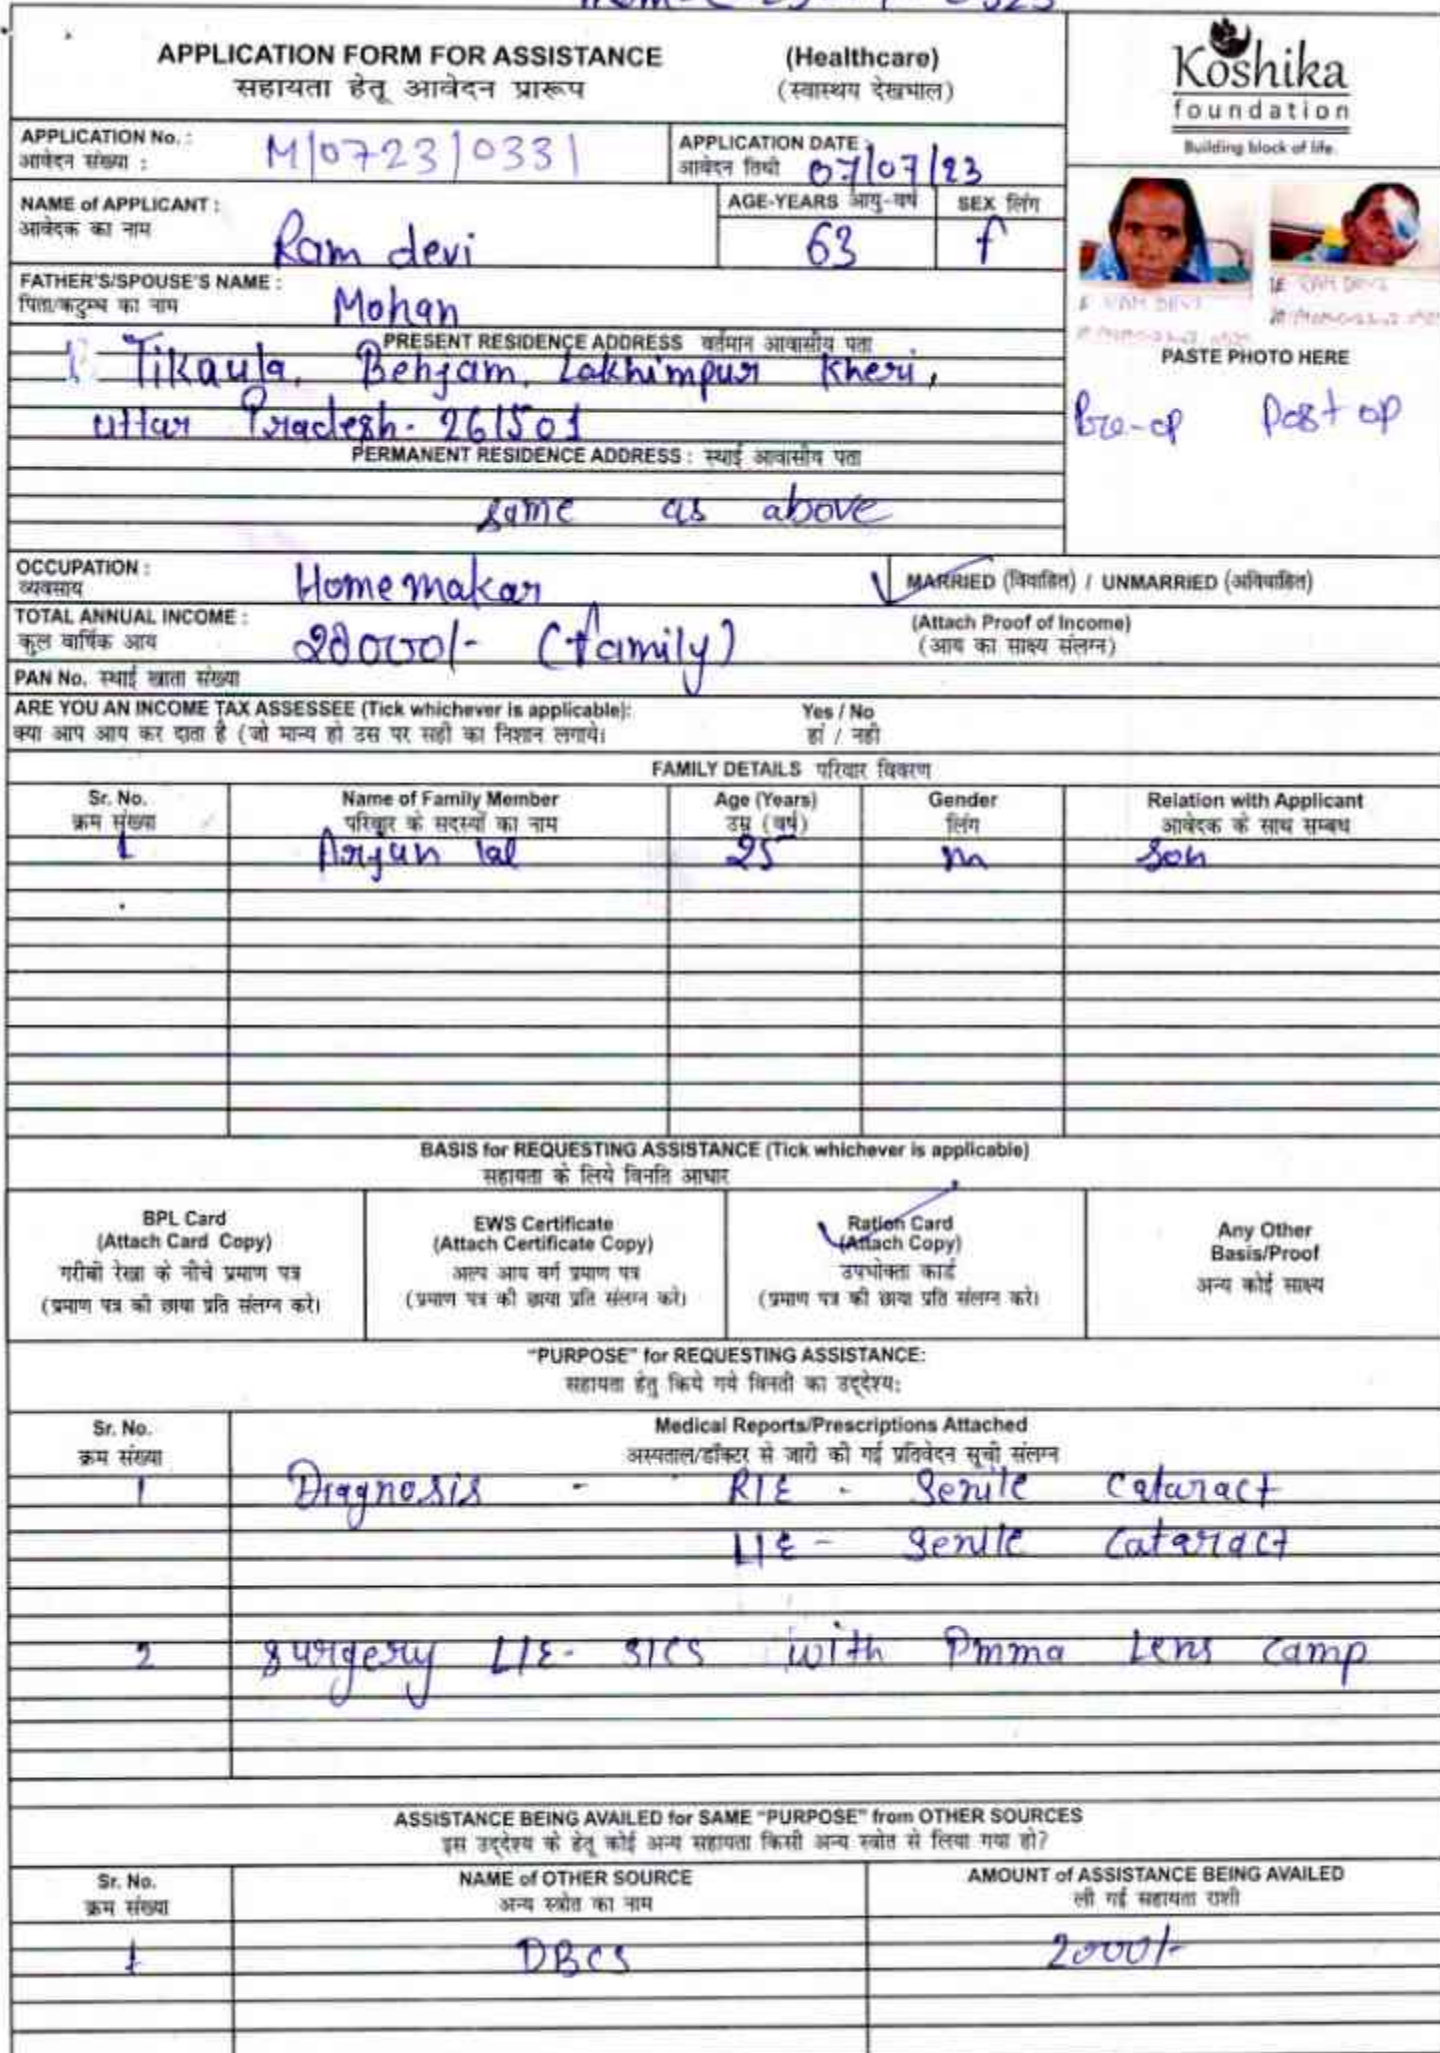 0325
APPLICATION FORM FOR ASSISTANCE (Healthcare)
सहायता हेतू आवेदन प्रारूप (स्वास्थय देखभाल)
Koshika
foundation
Building block of life.
APPLICATION No. : M/0723/0331
आवेदन संख्या :
APPLICATION DATE : 07/07/23
आवेदन तिथी
NAME of APPLICANT : Ram devi
आवेदक का नाम
AGE-YEARS आयु-वर्ष 63
SEX लिंग f
FATHER'S/SPOUSE'S NAME : Mohan
पिता/कटुम्ब का नाम
PRESENT RESIDENCE ADDRESS वर्तमान आवासीय पता
Tikaula, Behjam, Lakhimpur Kheri,
Uttar Pradesh- 261501
PERMANENT RESIDENCE ADDRESS : स्थाई आवासीय पता
same as above
RAM DEVI
RAM DEVI
PASTE PHOTO HERE
Pre-op Post op
OCCUPATION : Homemakar
व्यवसाय
MARRIED (विवाहित) / UNMARRIED (अविवाहित)
TOTAL ANNUAL INCOME : (family)
कुल वार्षिक आय
(Attach Proof of Income)
(आय का साक्ष्य संलग्न)
PAN No. स्थाई खाता संख्या
ARE YOU AN INCOME TAX ASSESSEE (Tick whichever is applicable): Yes / No
क्या आप आय कर दाता है (जो मान्य हो उस पर सही का निशान लगाये। हां / नही
FAMILY DETAILS परिवार विवरण
Sr. No. Name of Family Member Age (Years) Gender Relation with Applicant
क्रम संख्या परिवार के सदस्यों का नाम उम्र (वर्ष) लिंग आवेदक के साथ सम्बध
1 Arjun lal 25 m Son
BASIS for REQUESTING ASSISTANCE (Tick whichever is applicable)
सहायता के लिये विनति आधार
BPL Card
(Attach Card Copy)
गरीबी रेखा के नीचे प्रमाण पत्र
(प्रमाण पत्र की छाया प्रति संलग्न करे।
EWS Certificate
(Attach Certificate Copy)
अल्प आय वर्ग प्रमाण पत्र
(प्रमाण पत्र की छाया प्रति संलग्न करे।
Ration Card
(Attach Copy)
उपभोक्ता कार्ड
(प्रमाण पत्र की छाया प्रति संलग्न करे।
Any Other
Basis/Proof
अन्य कोई साक्ष्य
"PURPOSE" for REQUESTING ASSISTANCE:
सहायता हेतु किये गये विनती का उद्देश्य:
Sr. No. Medical Reports/Prescriptions Attached
क्रम संख्या अस्पताल/डॉक्टर से जारी की गई प्रतिवेदन सूची संलग्न
1 Diagnosis - R/E - Senile Cataract
L/E - Senile Cataract
2 Surgery L/E- SICS with Pmma Lens camp
ASSISTANCE BEING AVAILED for SAME "PURPOSE" from OTHER SOURCES
इस उद्देश्य के हेतू कोई अन्य सहायता किसी अन्य स्त्रोत से लिया गया हो?
Sr. No. NAME of OTHER SOURCE AMOUNT of ASSISTANCE BEING AVAILED
क्रम संख्या अन्य स्त्रोत का नाम ली गई सहायता राशी
1 DBCS 2000/-